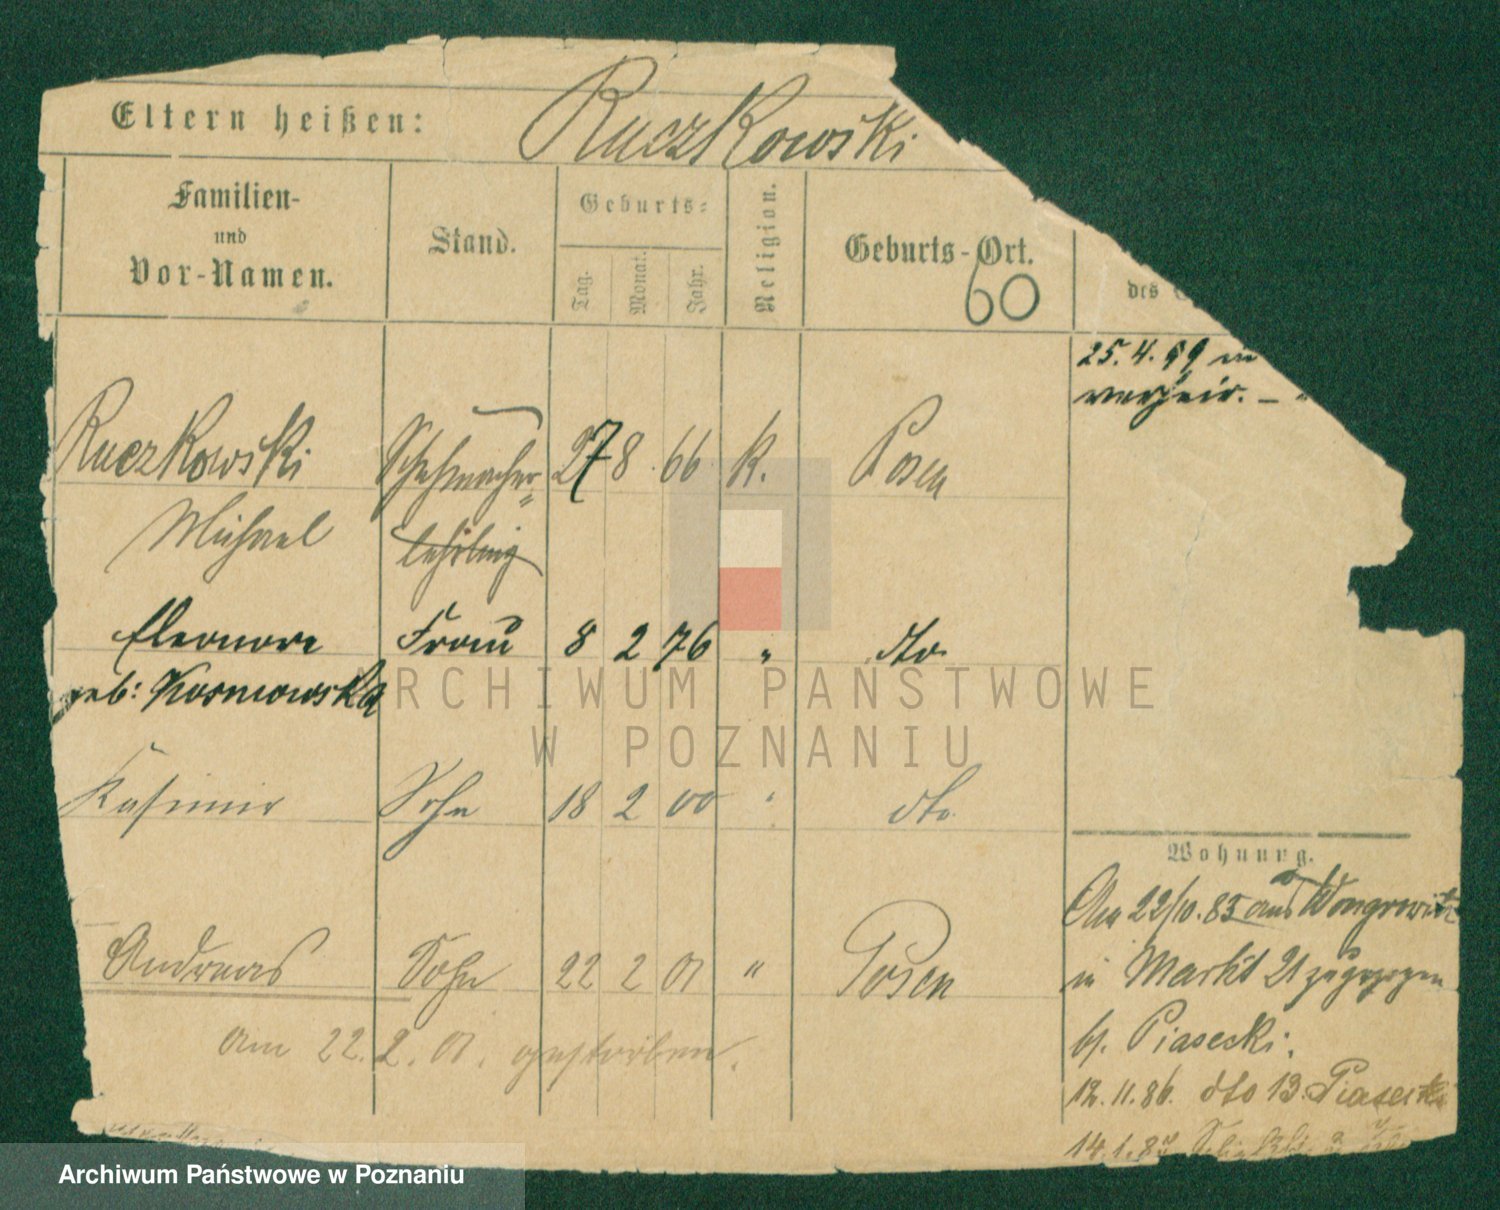 Eltern heißen: Ruczkowski
Familien-
und
Vor-Namen.
Stand.
Geburts-
Tag.
Monat.
Jahr.
Religion.
Geburts-Ort.
60
des
25. 4. 99 in
verheir. –
Ruczkowski Schuhmacher 27 8 66 k. Posen
Michael lehrling
Eleonore Frau 8 2 76 " dto.
geb:
Kasimir Sohn 18 2 00 " dto.
Andreas Sohn 22 2 01 " Posen
am 22. 2. 01. gestorben.
Wohnung.
Am 22/10. 85 aus Wongrowitz
in Markt 21 zugezogen
bei Piasecki.
12. 11. 86. dto 13. Piasecki
14. 1. 87
ARCHIWUM PAŃSTWOWE
W POZNANIU
Archiwum Państwowe w Poznaniu